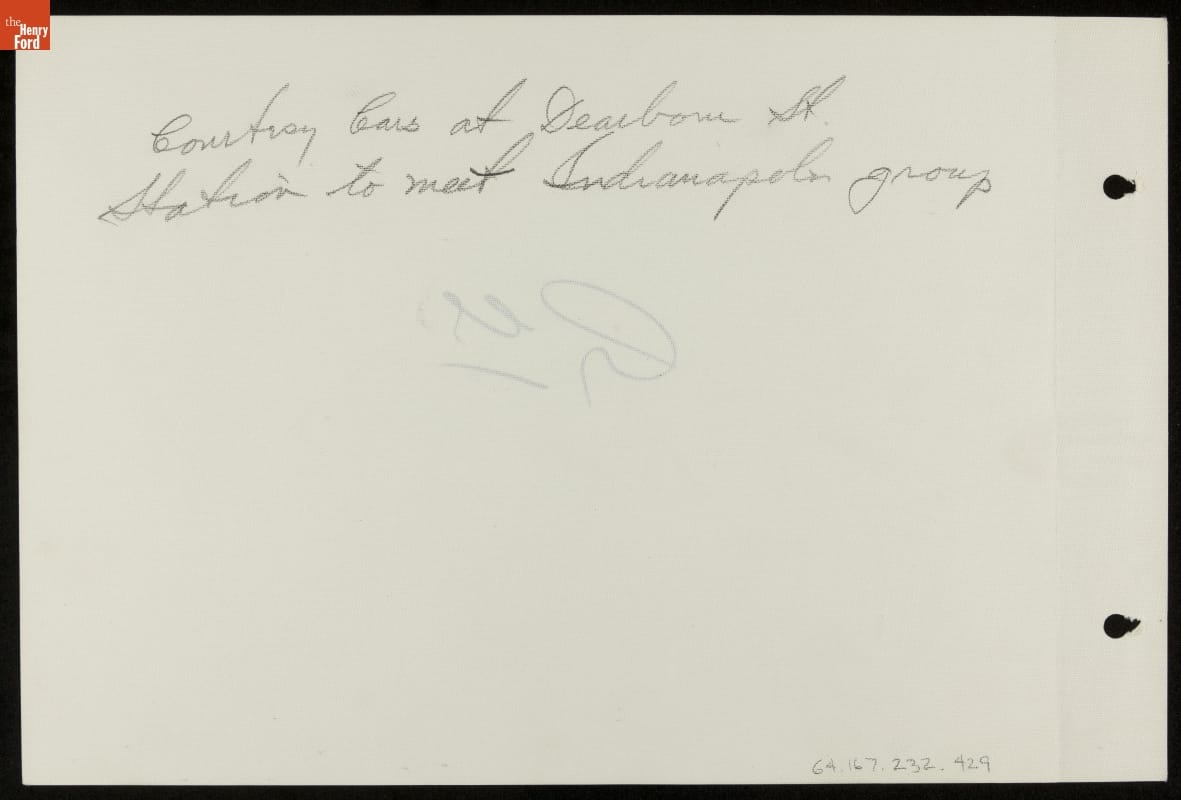 the
Henry
Ford
Courtesy Cars at Dearborn St.
Station to meet Indianapolis group
64.167.232.429